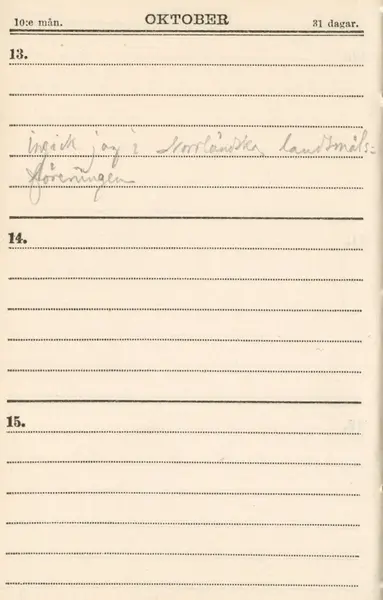 10:e mån. OKTOBER 31 dagar.
13.
ingick jag i Norrländska landsmåls-
föreningen
14.
15.